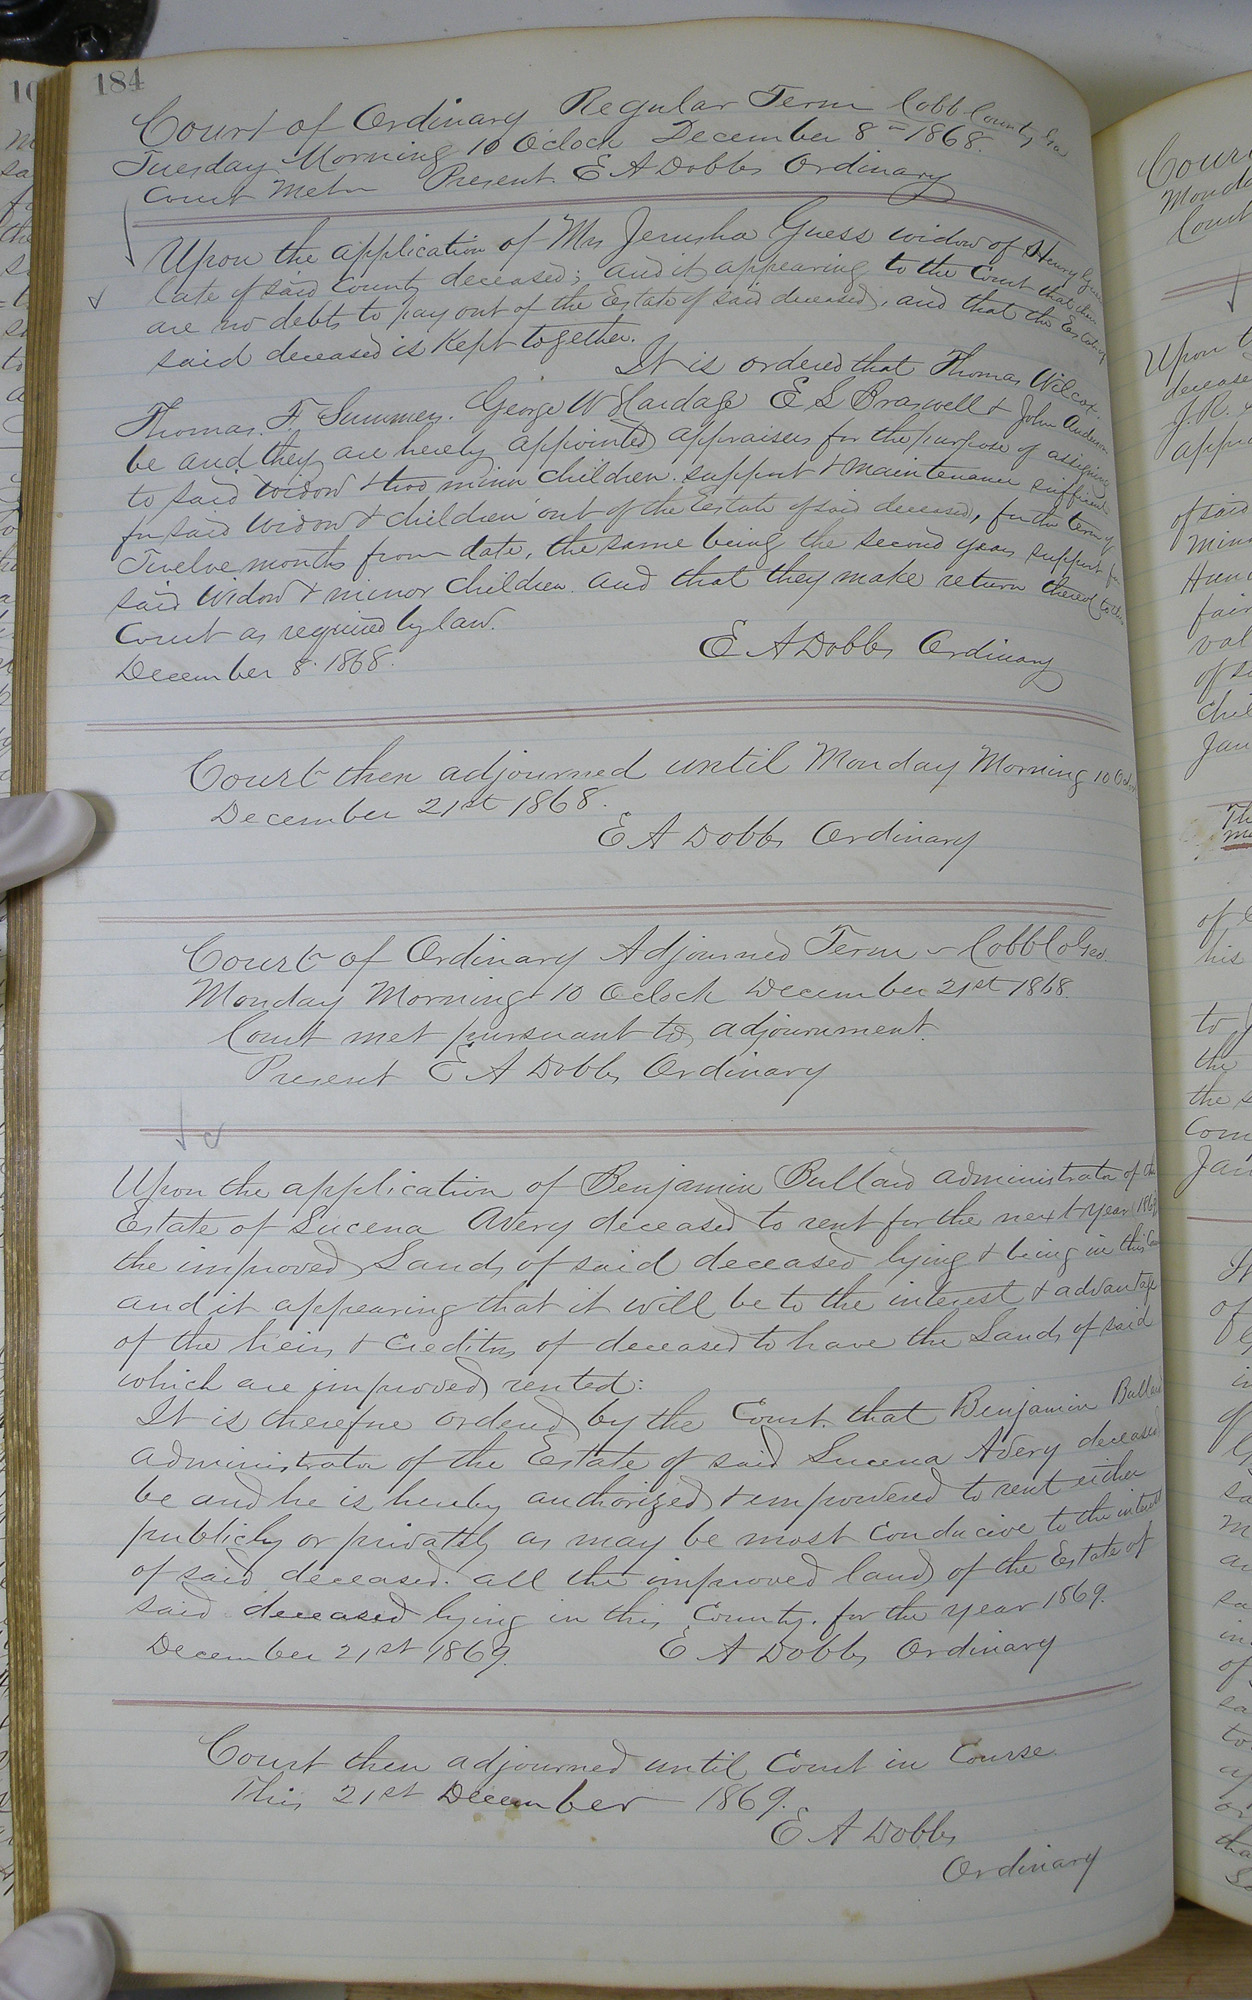 184
Court of Ordinary Regular Term Cobb County Ga
Tuesday Morning 10 Oclock December 8th 1868.
Court Met Present E A Dobbs Ordinary
Upon the application of Mrs Jerusha Guess widow of Henry Guess
late of said County deceased; and it appearing to the Court that there
are no debts to pay out of the Estate of said deceased, and that the Estate of
said deceased is Kept together.
It is ordered that Thomas Wilcox.
Thomas. F. Summers. George W Hardage E S Braswell & John Anderson
be and they are hereby appointed appraisers for the purpose of assigning
to said widow & two minor children support & maintenance sufficient
for said widow & children out of the Estate of said deceased, for the term of
Twelve months from date, the same being the second years support for
said widow & minor children. and that they make return thereof to this
Court as required by law.
December 8. 1868.
E A Dobbs Ordinary
Court then adjourned until Monday Morning 10 Oclock
December 21st 1868.
E A Dobbs Ordinary
Court of Ordinary Adjourned Term Cobb Co Geo.
Monday Morning 10 Oclock December 21st 1868.
Court met pursuant to adjournment.
Present E A Dobbs Ordinary
Upon the application of Benjamin Bullard administrator of the
Estate of Lucena Avery deceased to rent for the next year 1869
the improved Lands of said deceased lying & being in this
and it appearing that it will be to the interest & advantage
of the heirs & Creditors of deceased to have the Lands of said
which are improved rented:
It is therefore ordered by the Court. that Benjamin Bullard
administrator of the Estate of said Lucena Avery deceased
be and he is hereby authorized & empowered to rent either
publicly or privately as may be most conducive to the interest
of said deceased. all the improved lands of the Estate of
said deceased lying in this County. for the year 1869.
December 21st 1869.
E A Dobbs Ordinary
Court then adjourned until Court in Course.
This 21st December 1869.
E A Dobbs
Ordinary